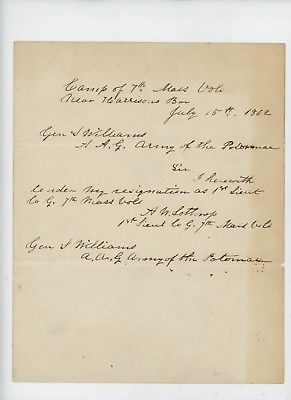 Camp of 7th Mass Vols
Near Harrisons Bar
July 15th, 1862
Gen S Williams
A. A. G. Army of the Potomac
Sir
I herewith
tender my resignation as 1st Lieut
Co G. 7th Mass Vols
A W Lothrop
1st Lieut Co G. 7th Mass Vols
Gen S Williams
A. A. G Army of the Potomac